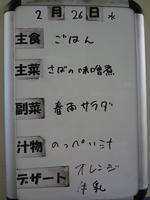 2月26日 水
主食 ごはん
主菜 さばの味噌煮
副菜 春雨サラダ
汁物 のっぺい汁
デザート オレンジ
牛乳